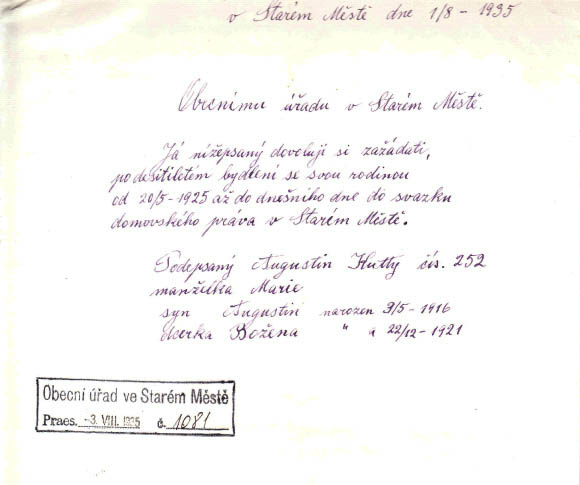 v Starém Městě dne 1/8 - 1935
Obecnímu úřadu v Starém Městě.
Já nížepsaný dovoluji si zažádati,
po desitiletém bydlení se svou rodinou
od 20/5 - 1925 až do dnešního dne do svazku
domovského práva v Starém Městě.
Podepsaný Augustin Hutty čís. 252
manželka Marie
syn Augustin narozen 3/5 - 1916
dcerka Božena " a 22/12 - 1921
Obecní úřad ve Starém Městě
Praes. -3. VIII. 1935 č. 1081